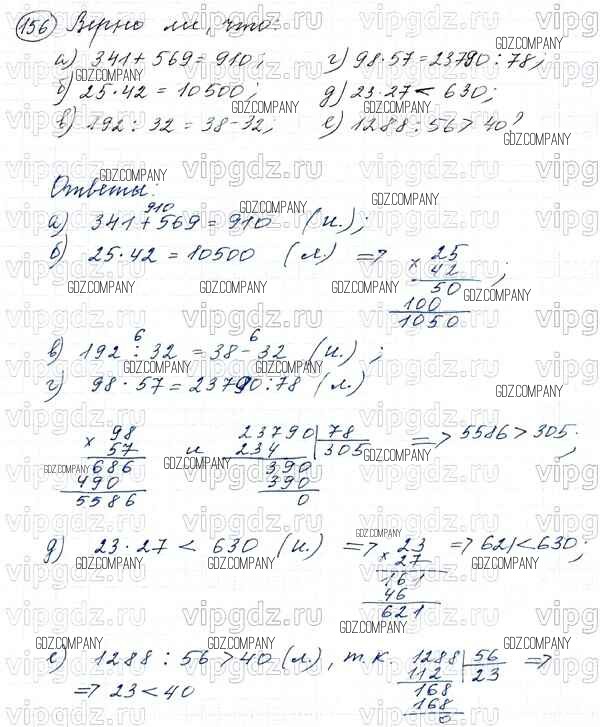 156 Верно ли, что:
а) 341 + 569 = 910; г) 98 · 57 = 23790 : 78;
б) 25 · 42 = 10500; д) 23 · 27 < 630;
в) 192 : 32 = 38 - 32; е) 1288 : 56 > 40?
Ответы:
910
а) 341 + 569 = 910 (и.);
б) 25 · 42 = 10500 (л.) => 25
× 42 ;
50
100
1050
6 6
в) 192 : 32 = 38 - 32 (и.);
г) 98 · 57 = 23790 : 78 (л.)
98 и 23790 | 78 => 5586 > 305;
× 57 234 305
686 390
490 390
5586 0
д) 23 · 27 < 630 (и.) => 23 => 621 < 630;
× 27
161
46
621
е) 1288 : 56 > 40 (л.), т.к. 1288 | 56 =>
112 23
=> 23 < 40 168
168
0
vipgdz.ru
GDZ.COMPANY